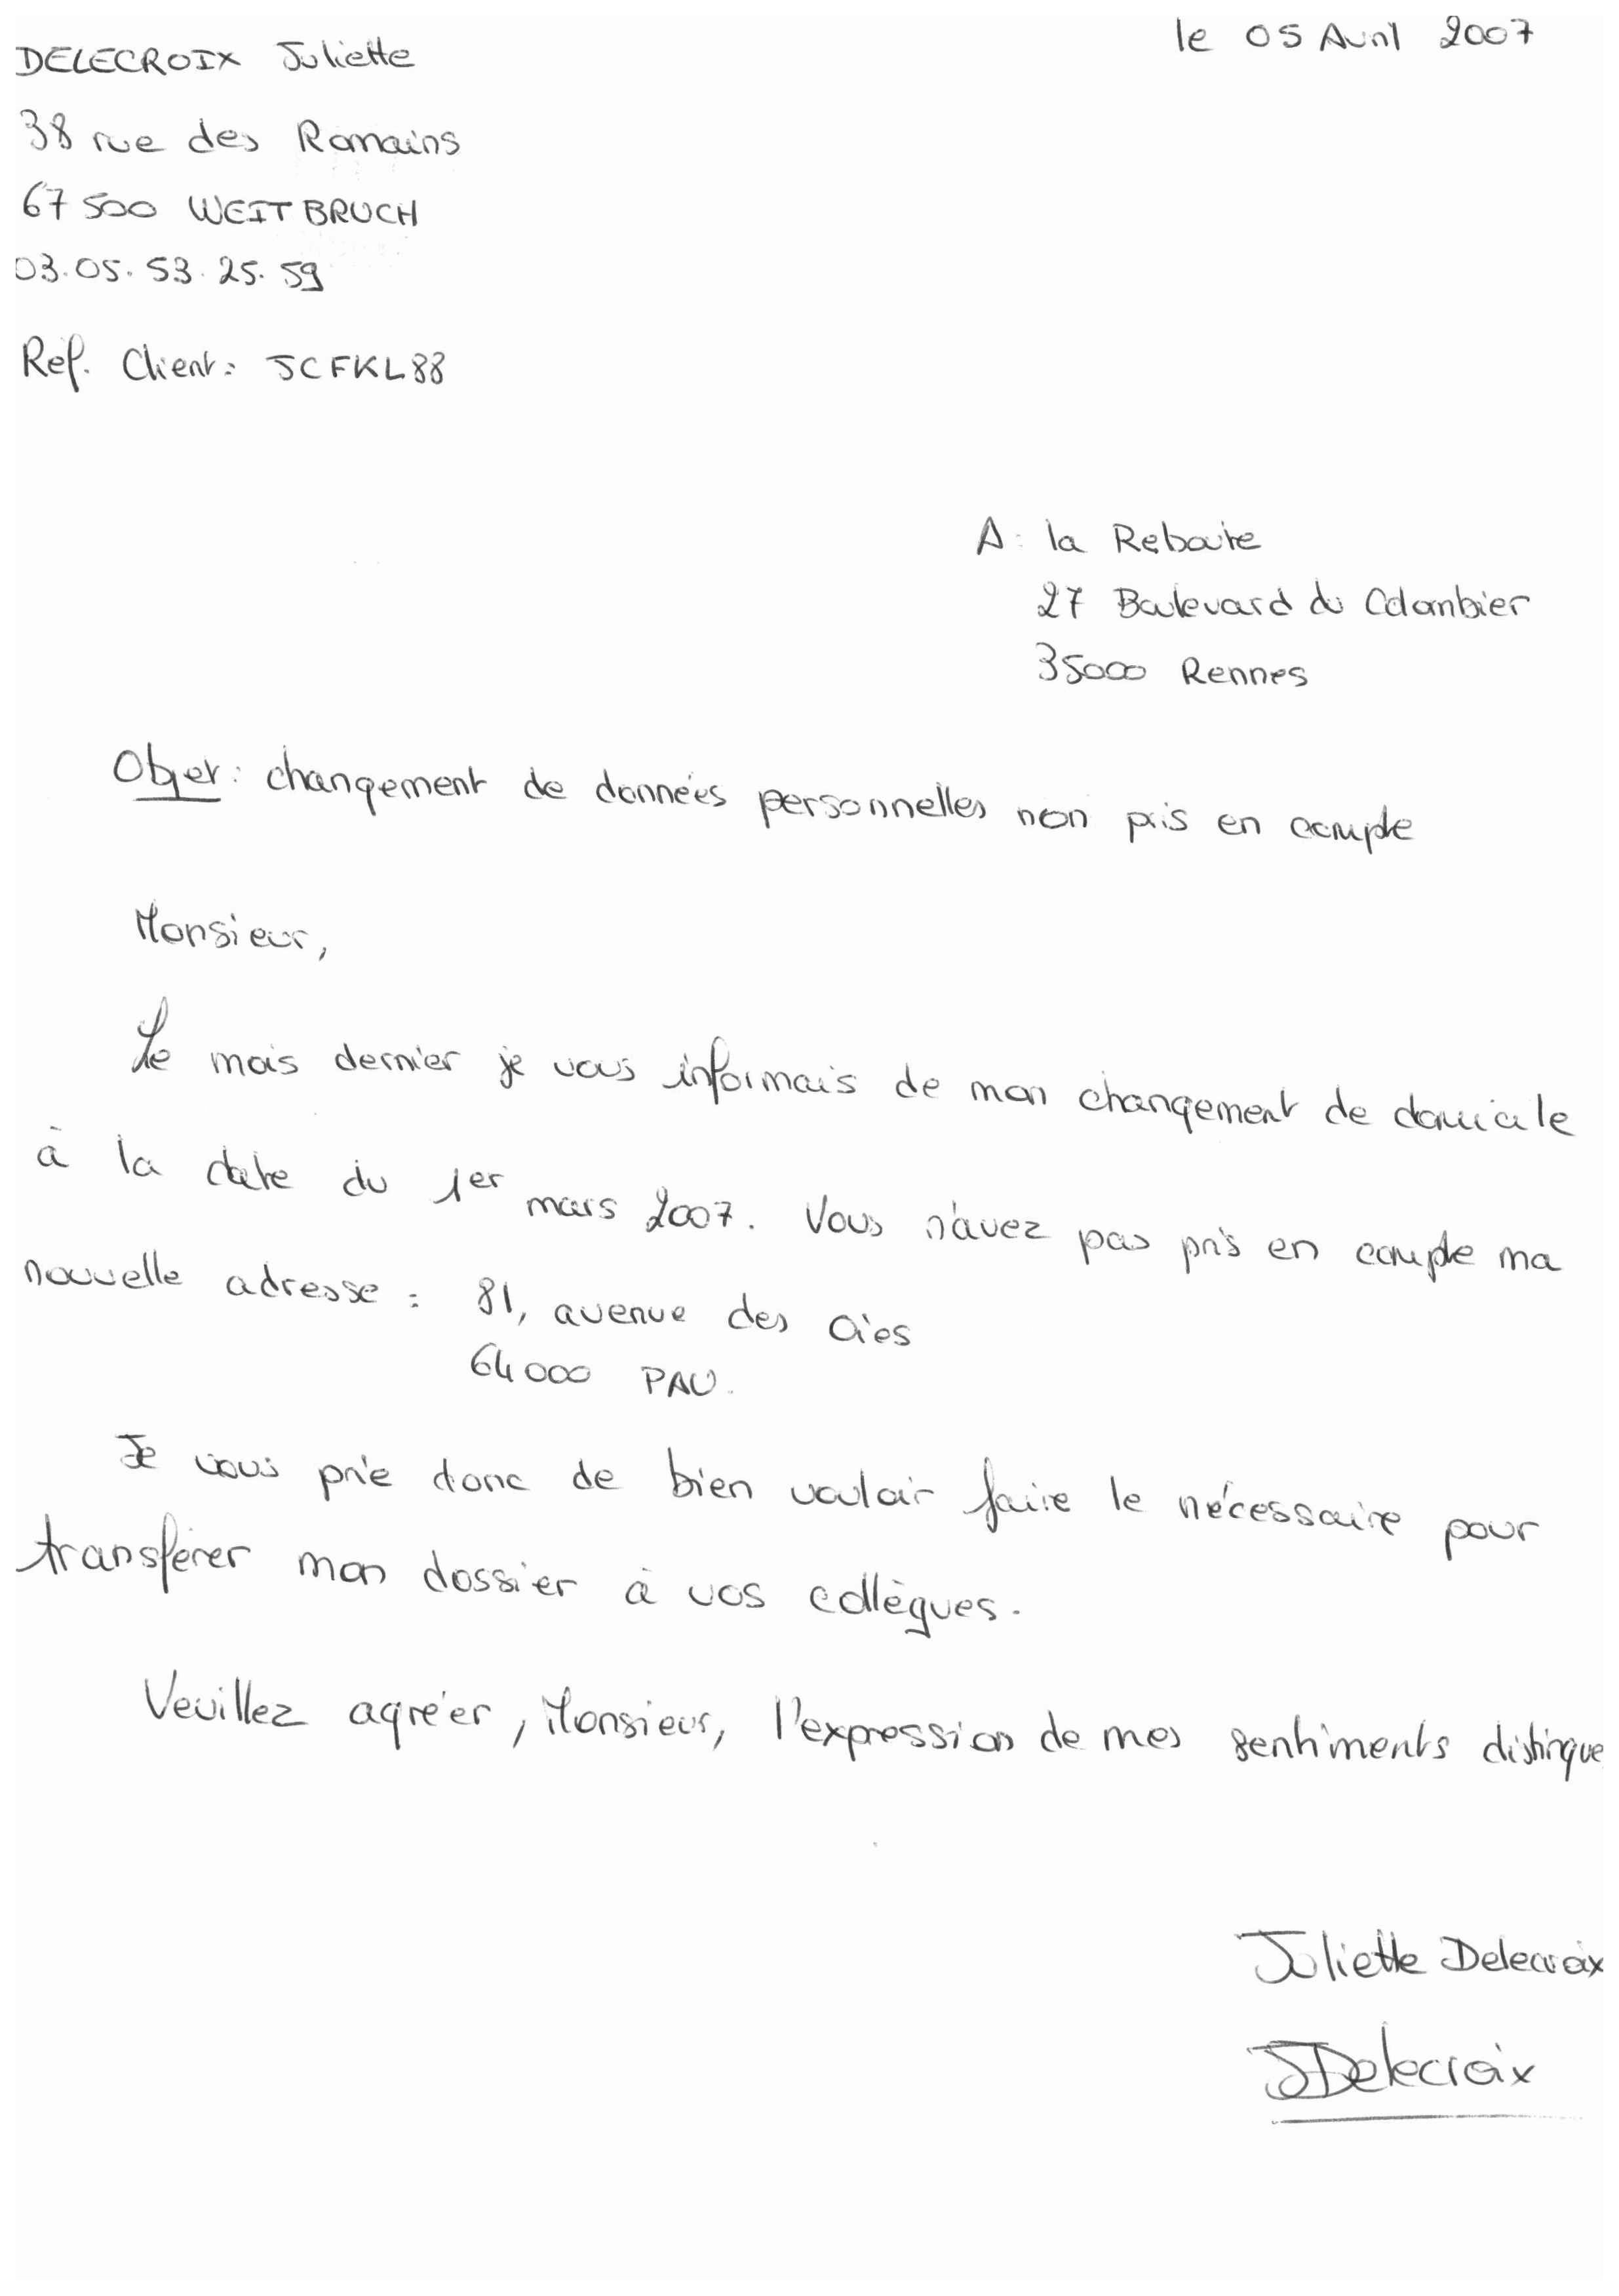 DELECROIX Juliette
le 05 Avril 2007
38 rue des Romains
67 500 WEITBRUCH
03.05.53.25.59
Réf. Client : JCFKL88
A : la Reboute
27 Boulevard du Colombier
35000 Rennes
Objet : changement de données personnelles non pris en compte
Monsieur,
Le mois dernier je vous informais de mon changement de domicile
à la date du 1er mars 2007. Vous n'avez pas pris en compte ma
nouvelle adresse : 81, avenue des
64000 PAU.
Je vous prie donc de bien vouloir faire le nécessaire pour
transférer mon dossier à vos collègues.
Veuillez agréer, Monsieur, l'expression de mes sentiments distingue
Juliette Delecroix
JDelecroix